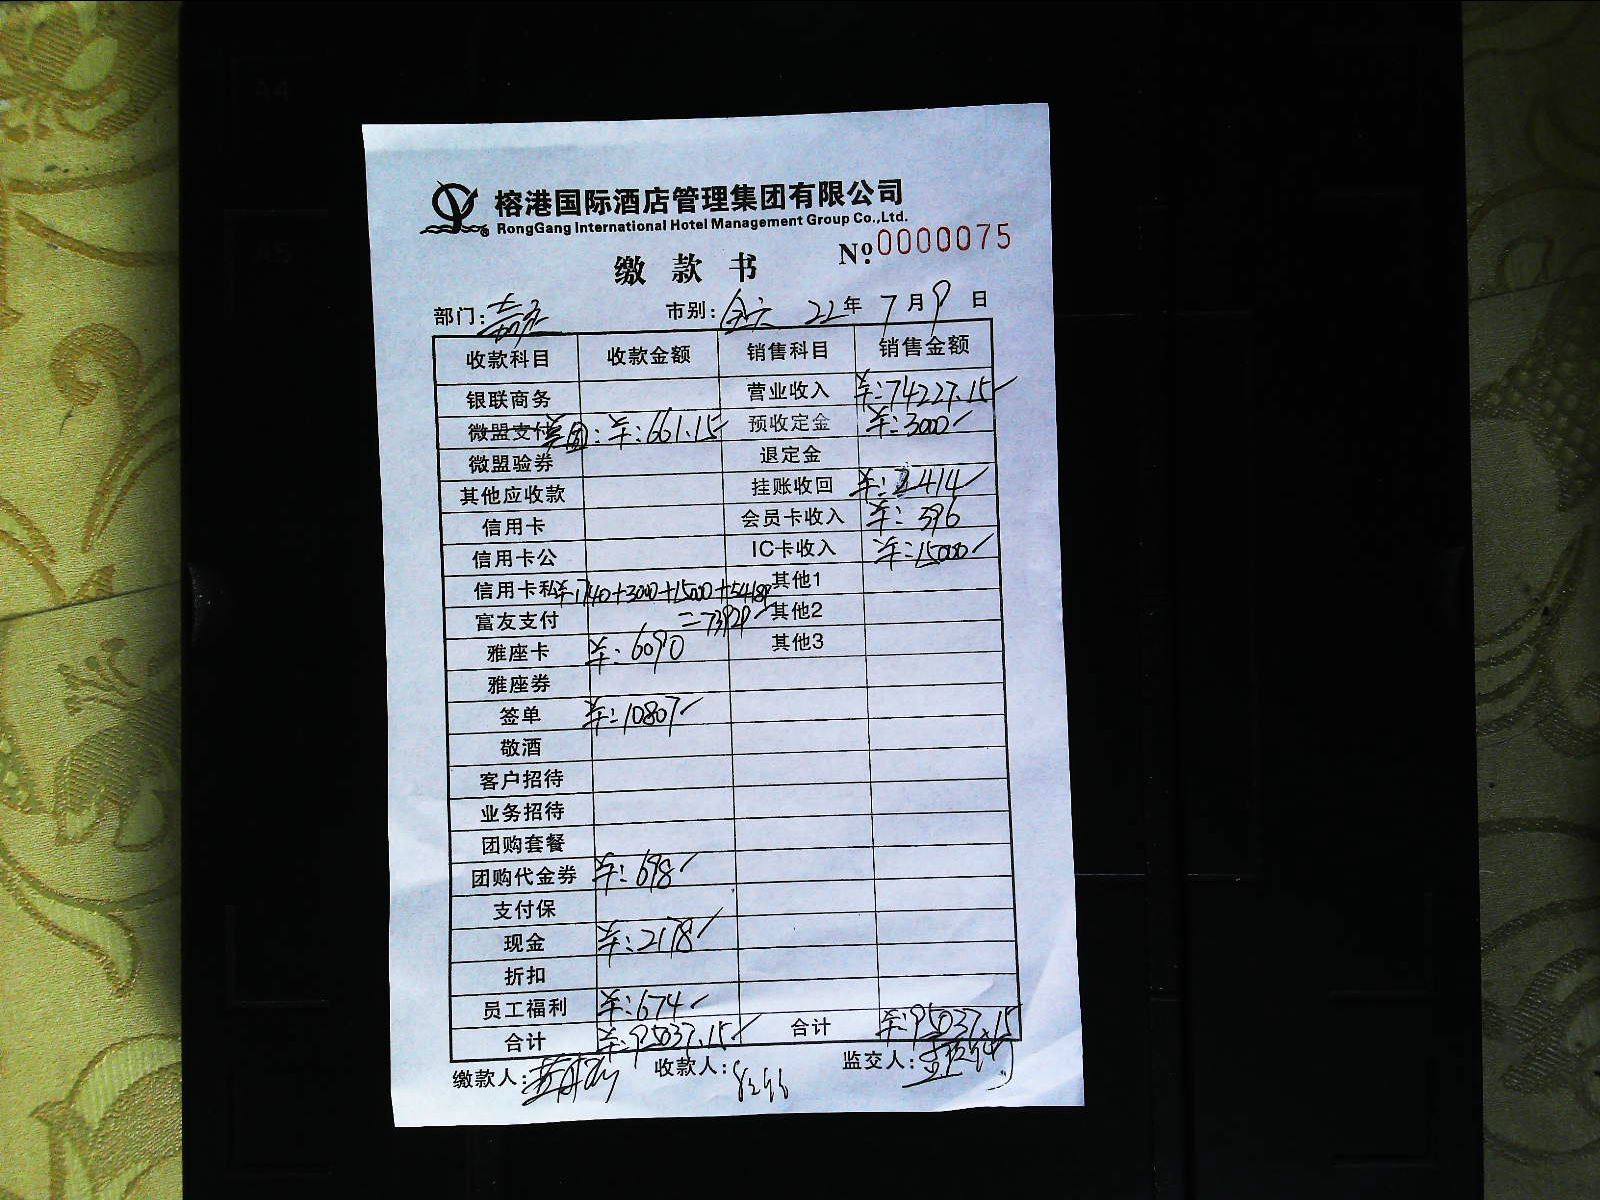 榕港国际酒店管理集团有限公司
RongGang International Hotel Management Group Co.,Ltd.
缴款书 №.0000075
部门: 市别: 22年 7月 9日
收款科目 收款金额 销售科目 销售金额
银联商务 营业收入 ¥:74227.15
微盟支付 美团: ¥:661.15 预收定金 ¥:3000
微盟验券 退定金
其他应收款 挂账收回 ¥:2414
信用卡 会员卡收入 ¥:396
信用卡公 IC卡收入 ¥:15000
信用卡私 ¥:1740+3000+15000+54189 其他1
富友支付 =73929 其他2
雅座卡 ¥:6090 其他3
雅座券
签单 ¥:10807
敬酒
客户招待
业务招待
团购套餐
团购代金券 ¥:698
支付保
现金 ¥:2178
折扣
员工福利 ¥:674
合计 ¥:95037.15 合计 ¥:95037.15
缴款人: 收款人: 监交人: